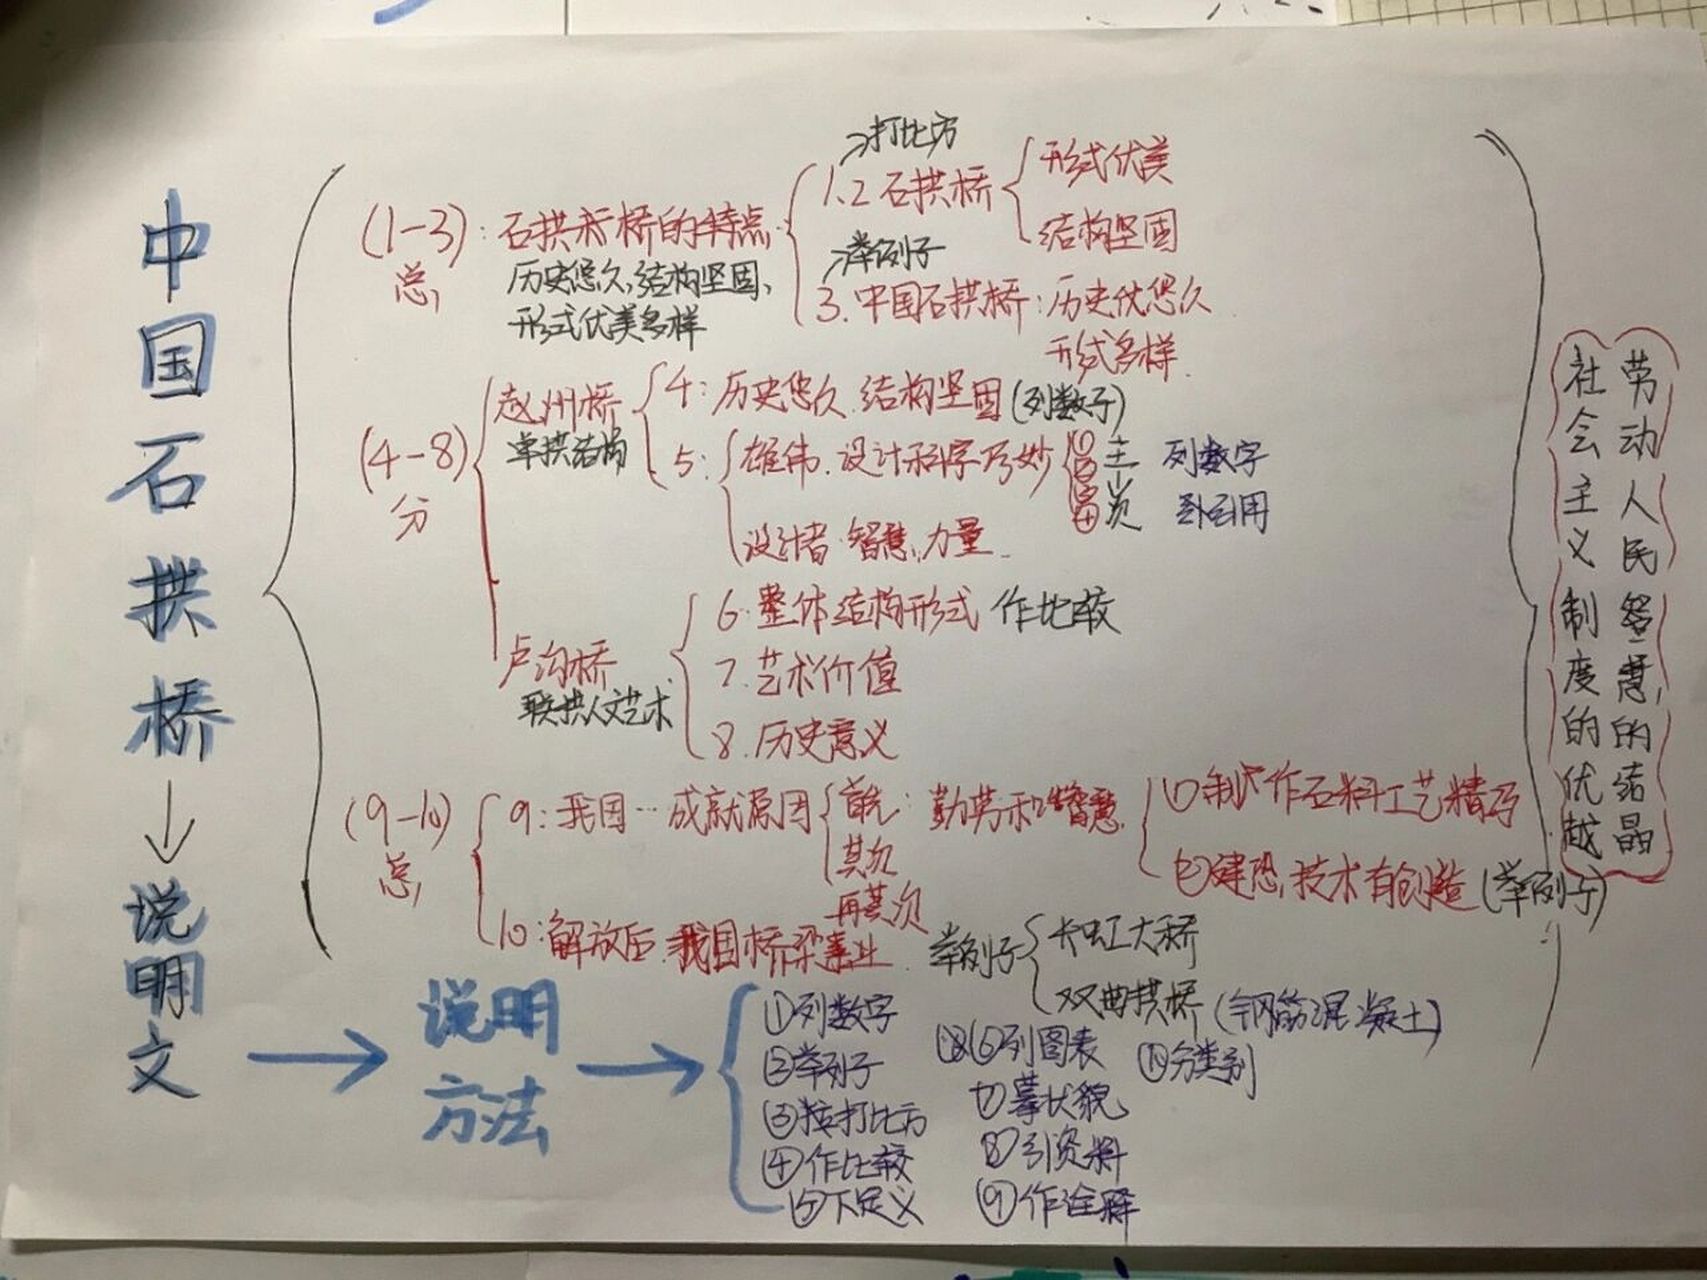 中国石拱桥
说明文
(1-3):石拱桥的特点
总
历史悠久,结构坚固、
形式优美多样
打比方
1.2石拱桥
形式优美
结构坚固
举例子
3.中国石拱桥:历史悠久
形式多样
(4-8)
分
赵州桥
单拱结构
4:历史悠久.结构坚固(列数字)
5:
雄伟.设计科学巧妙
①主
列数字
②
③
④次
引用
设计者:智慧,力量
卢沟桥
联拱人文艺术
6.整体结构形式 作比较
7.艺术价值
8.历史意义
(9-10)
总
9:我国…成就原因
首先:勤劳和智慧
其次
再其次
①制作石料工艺精巧
②建桥技术有创造(举例子)
10:解放后我国桥梁事业
举例子
长虹大桥
双曲拱桥(钢筋混凝土)
劳动人民智慧的结晶
社会主义制度的优越
说明
方法
①列数字
②举例子
③打比方
④作比较
⑤下定义
⑥列图表
⑦摹状貌
⑧引资料
⑨作诠释
⑩分类别